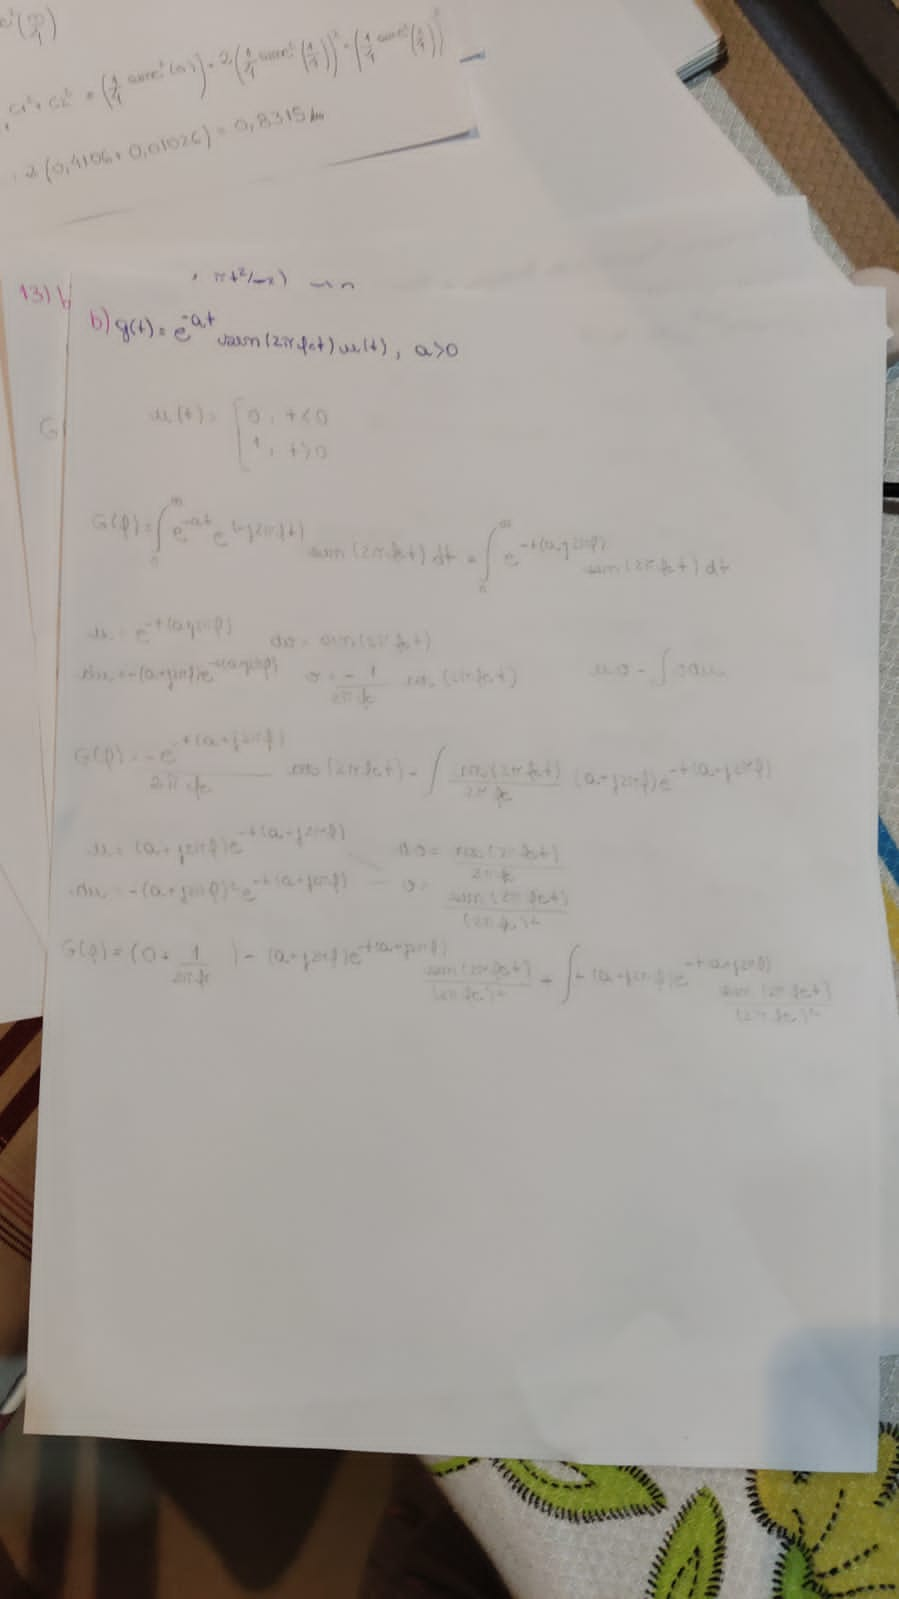 c1² + c2² = (1/4 sinc²(0))² + 2(1/4 sinc²(1/4))²
2(0,4106 + 0,01026) = 0,8315
13) b
b) g(t) = e^{-at} sen(2πfct) u(t), a>0
G
u(t) = { 0, t<0
1, t>0
G(f) = ∫₀^∞ e^{-at} e^{(-j2πft)} sen(2πfct) dt = ∫₀^∞ e^{-t(a+j2πf)} sen(2πfct) dt
u = e^{-t(a+j2πf)} dv = sen(2πfct)
du = -(a+j2πf)e^{-t(a+j2πf)} v = -1/(2πfc) cos(2πfct) uv - ∫vdu
G(f) = -e^{-t(a+j2πf)}/(2πfc) cos(2πfct) - ∫ cos(2πfct)/(2πfc) (a+j2πf)e^{-t(a+j2πf)}
u = (a+j2πf)e^{-t(a+j2πf)} dv = cos(2πfct)/(2πfc)
du = -(a+j2πf)²e^{-t(a+j2πf)} v = sen(2πfct)/(2πfc)²
G(f) = (0 + 1/(2πfc)) - (a+j2πf)e^{-t(a+j2πf)} sen(2πfct)/(2πfc)² + ∫-(a+j2πf)e^{-t(a+j2πf)} sen(2πfct)/(2πfc)²